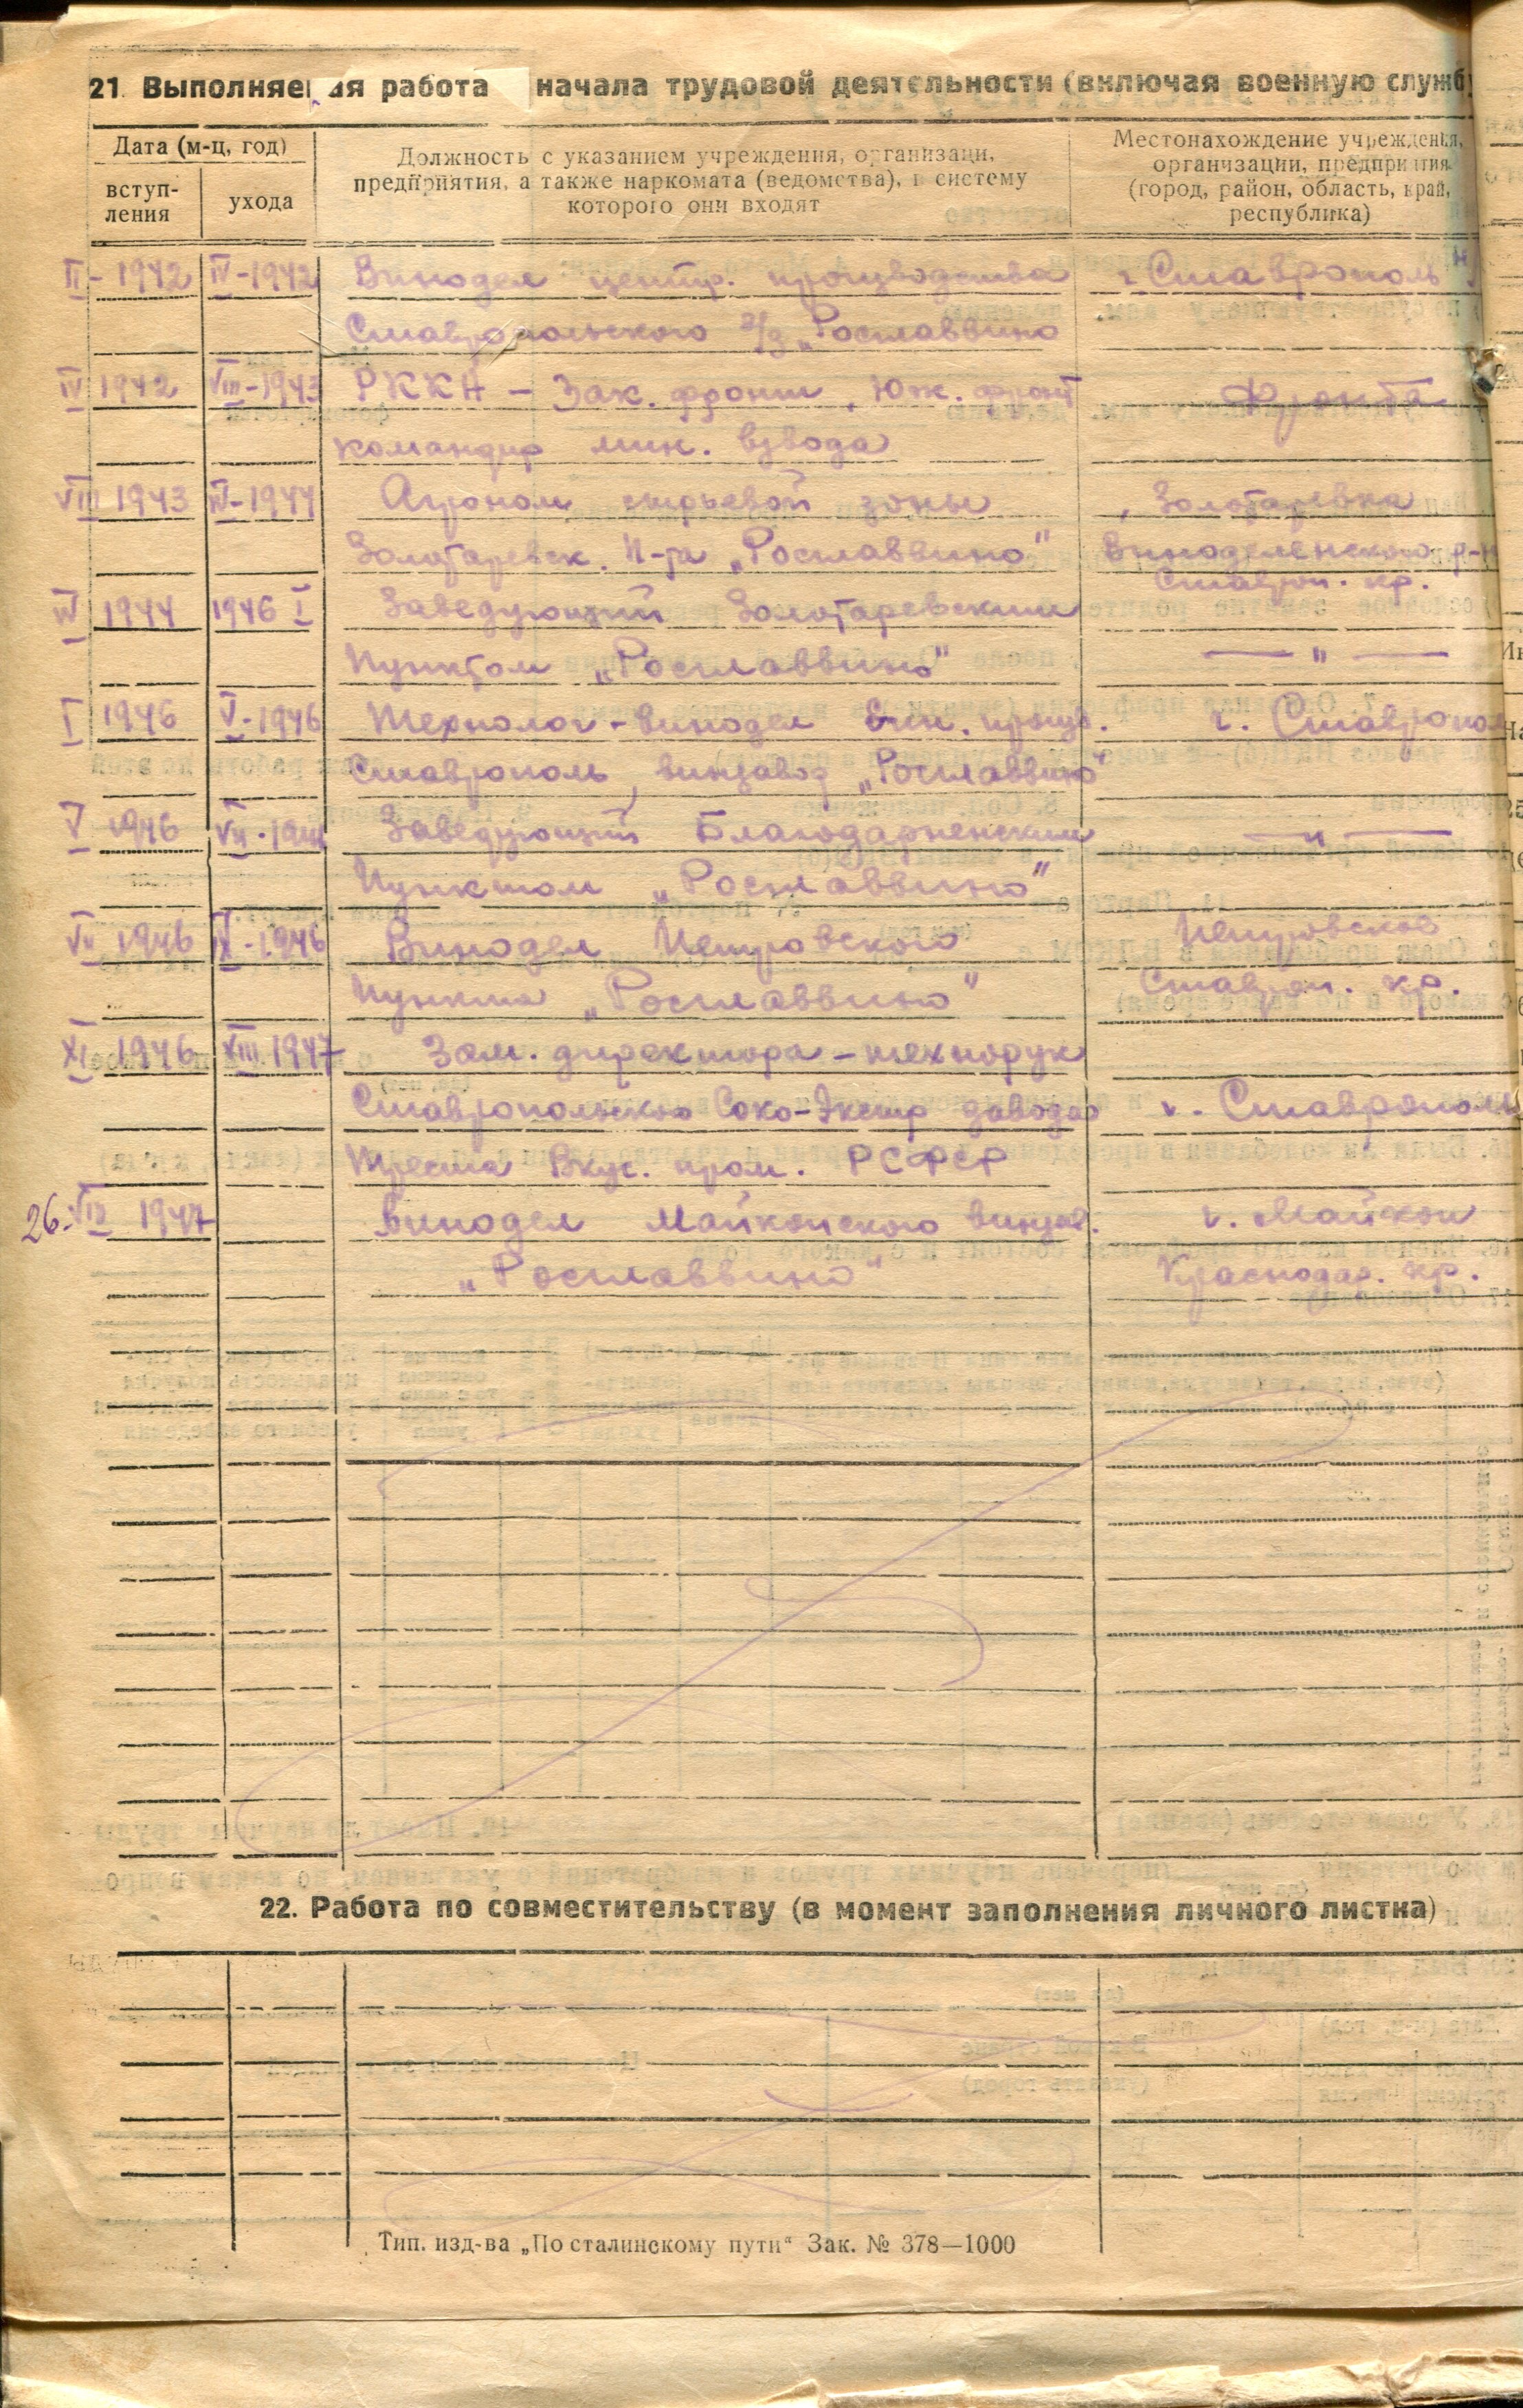 21. Выполняе я работа начала трудовой деятельности (включая военную служб
Дата (м-ц, год)
вступ-
ления
ухода
Должность с указанием учреждения, организаци,
предприятия, а также наркомата (ведомства), в систему
которого они входят
Местонахождение учреждения,
организации, предприятия
(город, район, область, край,
республика)
II - 1942 IV - 1942 Винодел центр. производства г. Ставрополь
Ставропольского в/з „Росглаввино
IV 1942 VIII - 1943 РККА – Зак. фронт, Юж. фронт Фронта
командир мин. взвода
VIII 1943 - 1944 Агроном сырьевой зоны Золотаревка
Золотаревск. п-та „Росглаввино" Виноделенского р-н
Ставроп. кр.
1944 1946 I Заведующий Золотаревским
Пунктом „Росглаввино" — " —
I 1946 V - 1946 Технолог - винодел произв. г. Ставропол
Ставрополь, винзавод „Росглаввино"
V 1946 VII - Заведующий Благодарненским — " —
Пунктом „Росглаввино"
VII 1946 IX - 1946 Винодел Петровского Петровское
Пункта „Росглаввино" Ставроп. кр.
XI 1946 1947 Зам. директора – технорук
Ставропольского Соко-Экстр завода г. Ставрополь
Треста Вкус. пром. РСФСР
26. 1947 Винодел Майкопского винзав. г. Майкоп
„Росглаввино" Краснодар. кр.
22. Работа по совместительству (в момент заполнения личного листка)
Тип. изд-ва „По сталинскому пути" Зак. № 378—1000